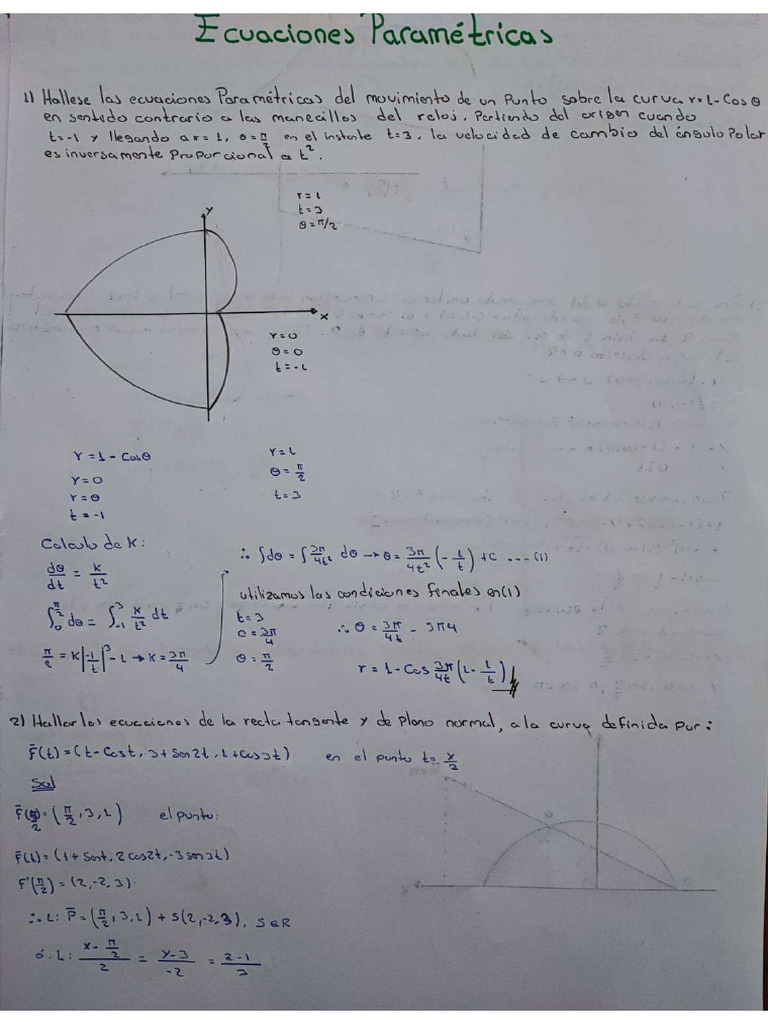 Ecuaciones Paramétricas
1) Hallese las ecuaciones Paramétricas del movimiento de un Punto sobre la curva r=1-Cosθ
en sentido contrario a las manecillos del reloj, Partiendo del origen cuando
t=-1 y llegando a r=1, θ=π/2 en el instante t=3, la velocidad de cambio del ángulo Polar
es inversamente Proporcional a t².
r=1
t=3
θ=π/2
y
x
r=0
θ=0
t=-1
r=1-Cosθ
r=0
r=θ
t=-1
r=1
θ=π/2
t=3
Calculo de K:
dθ/dt = K/t²
∫₀^(π/2) dθ = ∫₋₁³ K/t² dt
π/2 = K|-1/t|³-1 → K=3π/4
∴ ∫dθ = ∫3π/4t² dθ → θ= 3π/4t² (-1/t) +C ----(1)
utilizamos las condiciones finales en(1)
t=3
c=3π/4
θ=π/2
∴ θ = 3π/4t - 3π4
r=1-Cos 3π/4t (1-1/t)
2) Hallar los ecuaciones de la recta tangente y de Plano normal, a la curva definida por:
F̄(t)=(t-Cost, 3+Sen2t, 1+Cos3t) en el punto t=x/2
Sol
=(π/2, 3, 1) el punto:
F̄(t)=(1+Sent, 2cos2t, -3sen3t)
F'(π/2)=(2,-2,3).
∴ L: P̄=(π/2, 3, 1) + S(2,-2,3), S∈R
ó. L: (x-π/2)/2 = (y-3)/-2 = (z-1)/3
x